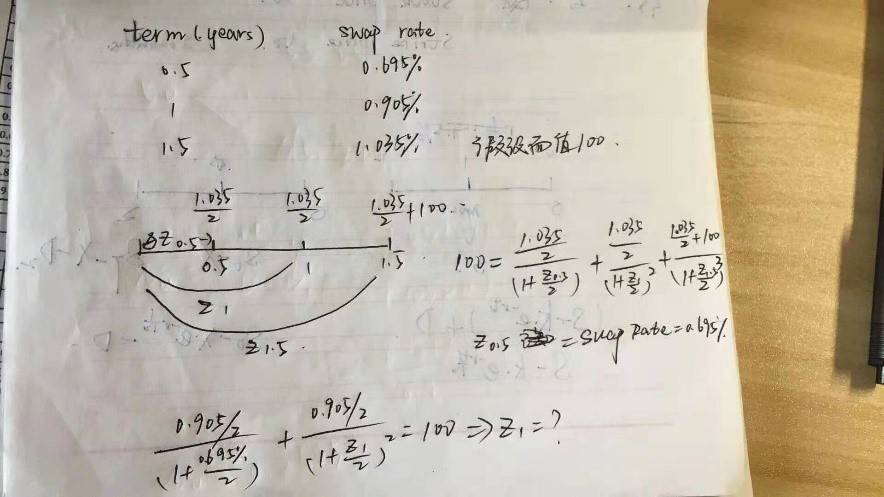 term (years) swap rate
0.5 0.695%
1 0.905%
1.5 1.035% 假设面值100.
1.035/2 1.035/2 1.035/2+100
Z0.5→
0.5 1 1.5
Z1
Z1.5
100 = (1.035/2)/(1+Z0.5/2) + (1.035/2)/(1+Z1/2)² + (1.035/2+100)/(1+Z1.5/2)³
Z0.5 = swap rate = 0.695%
(0.905/2)/(1+0.695%/2) + (0.905/2)/(1+Z1/2)² = 100 ⇒ Z1 = ?